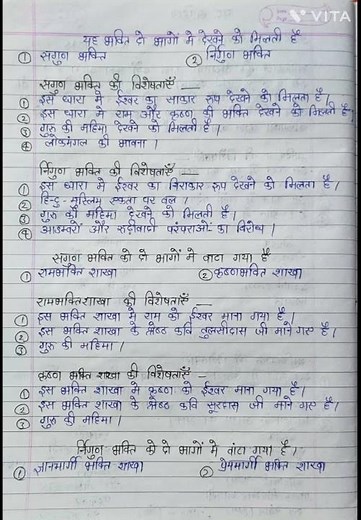 VITA
यह भक्ति दो भागों में देखने को मिलती है
① सगुण भक्ति ② निर्गुण भक्ति
सगुण भक्ति की विशेषताएँ —
① इस धारा में ईश्वर का साकार रूप देखने को मिलता है।
② इस धारा में राम और कृष्ण की भक्ति देखने को मिलती है।
③ गुरु की महिमा देखने को मिलती है।
④ लोकमंगल की भावना।
निर्गुण भक्ति की विशेषताएँ —
① इस धारा में ईश्वर का निराकार रूप देखने को मिलता है।
② हिन्दु-मुस्लिम एकता पर बल।
③ गुरु की महिमा देखने को मिलती है।
④ आडम्बरों और रूढ़ीवादी परंपराओं का विरोध।
सगुण भक्ति को दो भागों में बांटा गया है
① रामभक्ति शाखा ② कृष्णभक्ति शाखा
रामभक्ति शाखा की विशेषताएँ —
① इस भक्ति शाखा में राम को ईश्वर माना गया है।
② इस भक्ति शाखा के श्रेष्ठ कवि तुलसीदास जी माने गए है।
③ गुरु की महिमा।
कृष्ण भक्ति शाखा की विशेषताएँ —
① इस भक्ति शाखा में कृष्ण को ईश्वर माना गया है।
② इस भक्ति शाखा के श्रेष्ठ कवि सूरदास जी माने गए है।
③ गुरु की महिमा।
निर्गुण भक्ति को दो भागों में बांटा गया है।
① ज्ञानमार्गी भक्ति शाखा ② प्रेममार्गी भक्ति शाखा